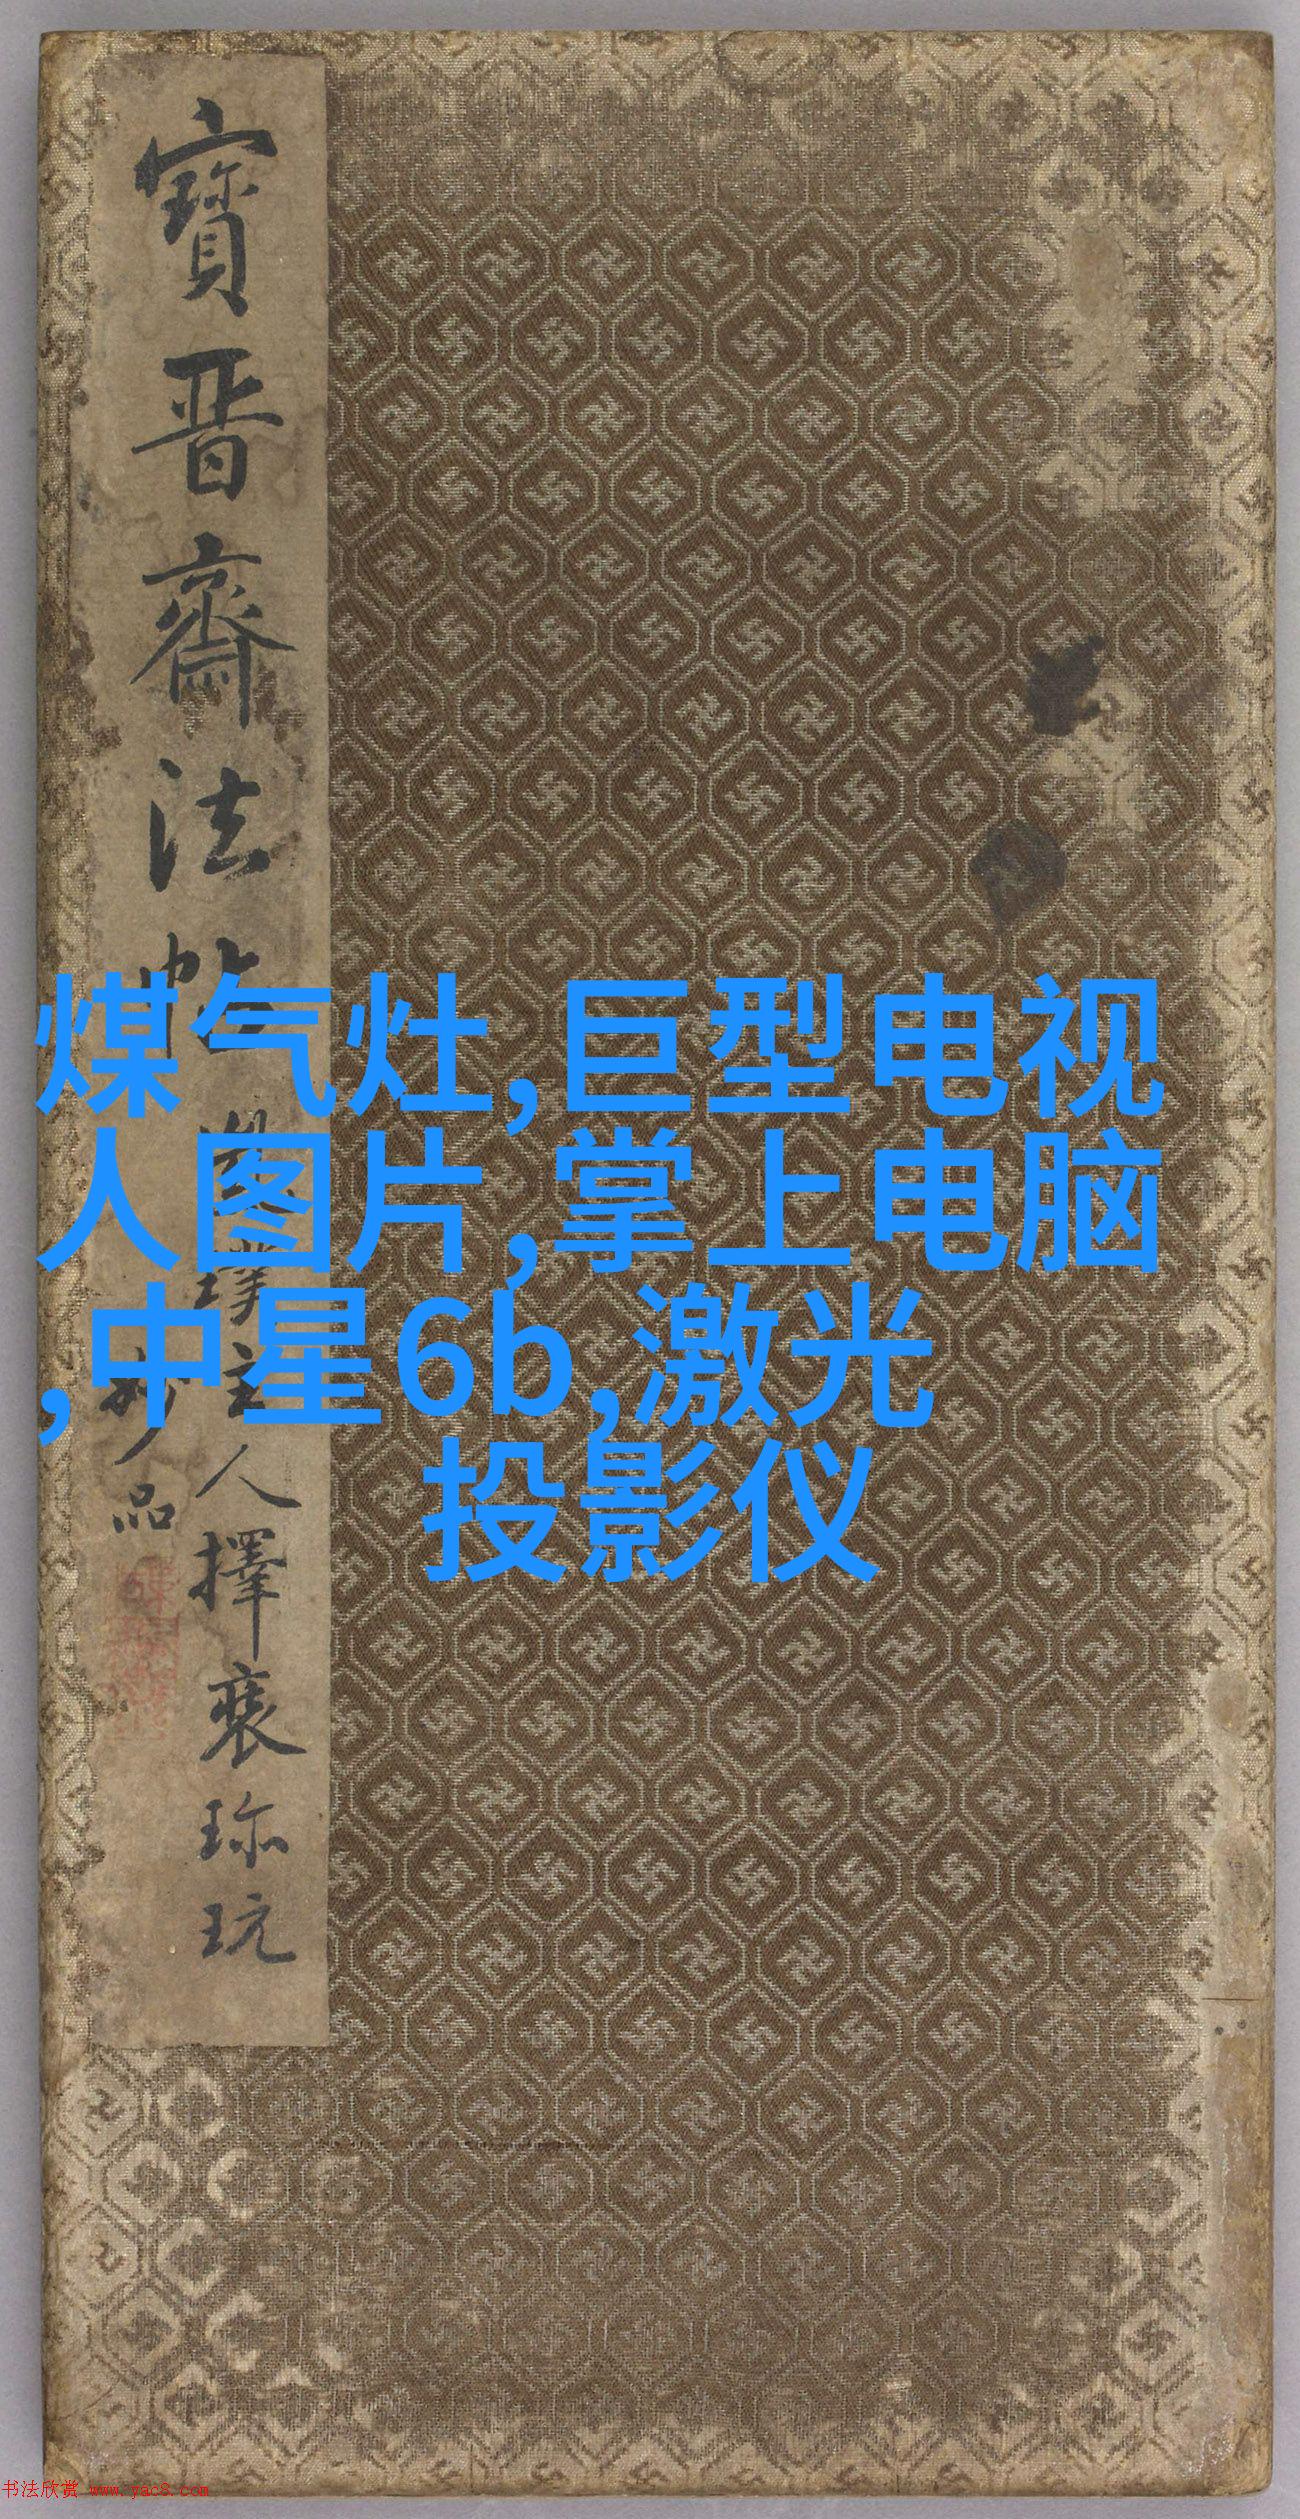 寶晋齋法帖
主人擇裒珎玩
妙品
煤气灶,巨型电视
人图片,掌上电脑
,中星6b,激光
投影仪
书法欣赏 www.yac8.com